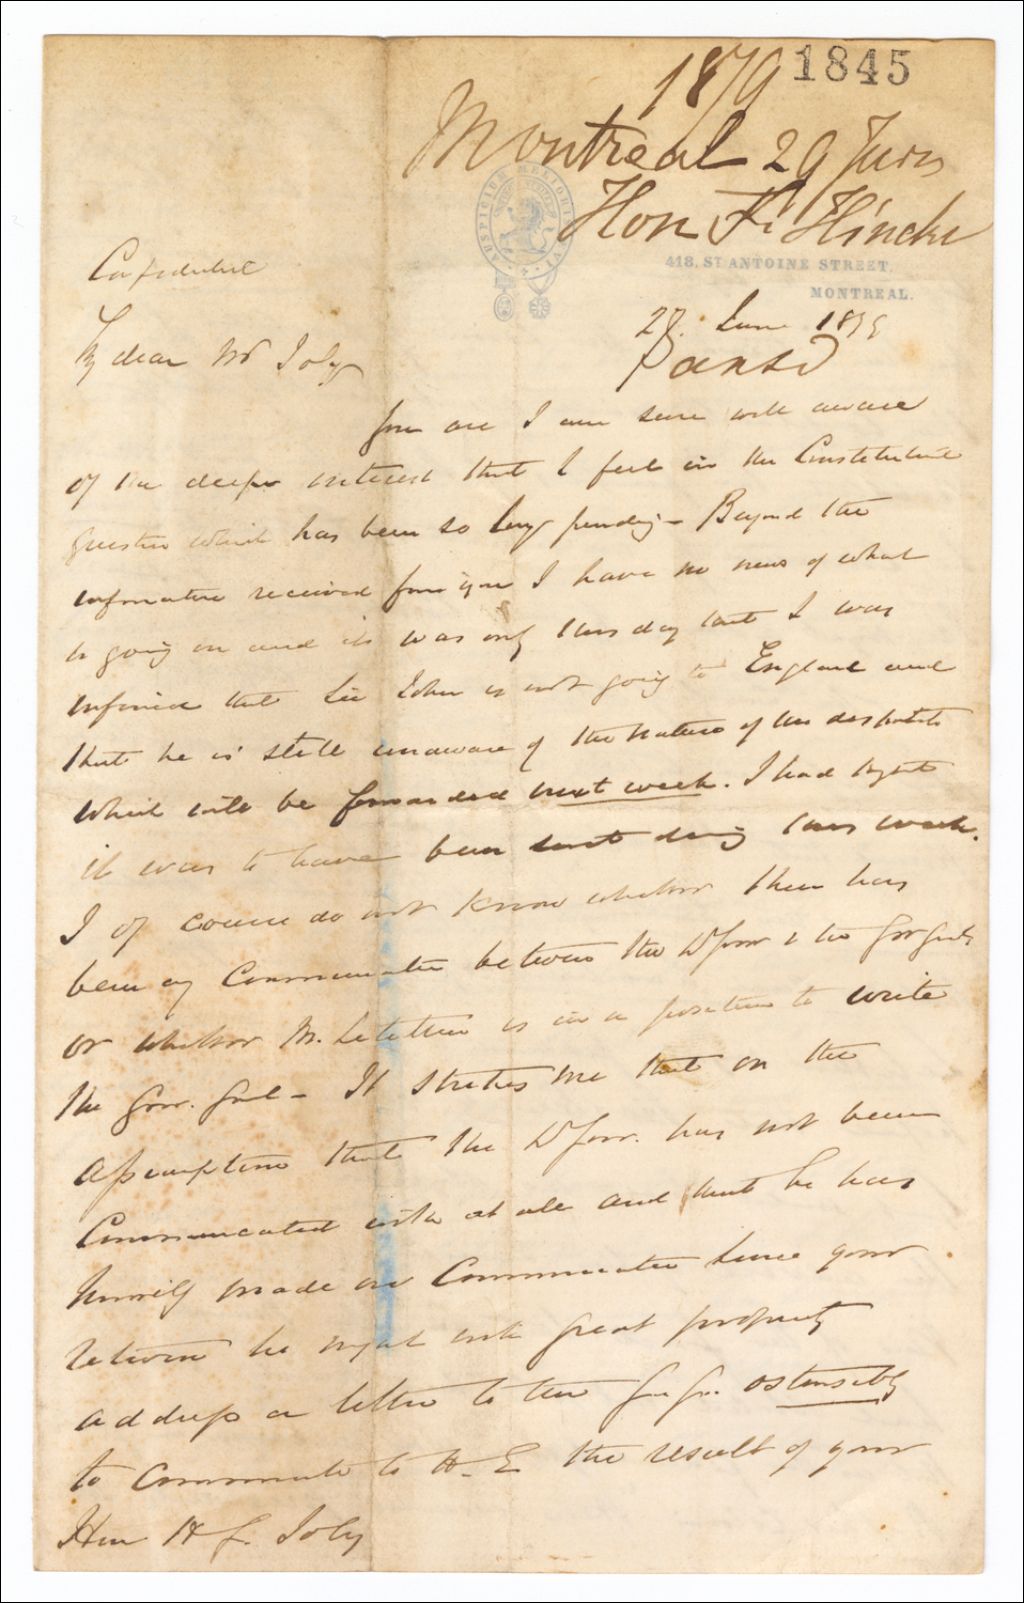 1879 1845
Montreal 29 Juin
Hon Fs Hincks
AUSPICIUM MELIORIS ÆVI
418, ST ANTOINE STREET,
MONTREAL.
Confidential
28. June 1879
My dear Mr Joly
You are I am sure well aware
of the deep interest that I feel in the Constitutional
question which has been so long pending - Beyond the
information received from you I have no news of what
is going on and it was only this day that I was
informed that Sir John is not going to England and
that he is still unaware of the nature of the despatch
which will be forwarded next week. I had thought
it was to have been sent during this week.
I of course do not know whether there has
been any Communication between the Lt Govr & the Gov Genl
or whether M. Letellier is in a position to write
the Gov. Genl - It strikes me that on the
assumption that the Lt Govr. has not been
Communicated with at all and that he has
himself made no Communication since your
return he might with great propriety
address a letter to the Gov Gen. ostensibly
to Communicate to H. E. the result of your
Hon H G. Joly